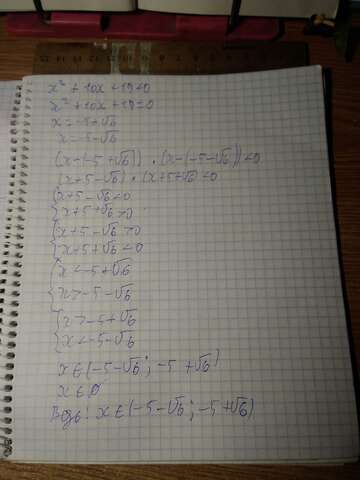 x² + 10x + 19<0
x² + 10x + 19=0
x = -5+√6
x = -5-√6
(x-(-5+√6)) · (x-(-5-√6))<0
(x+5-√6) · (x+5+√6)<0
{x+5-√6<0
{x+5+√6>0
{x+5-√6>0
{x+5+√6<0
{x<-5+√6
{x>-5-√6
{x>-5+√6
{x<-5-√6
x∈(-5-√6; -5+√6)
x∈∅
x∈(-5-√6; -5+√6)